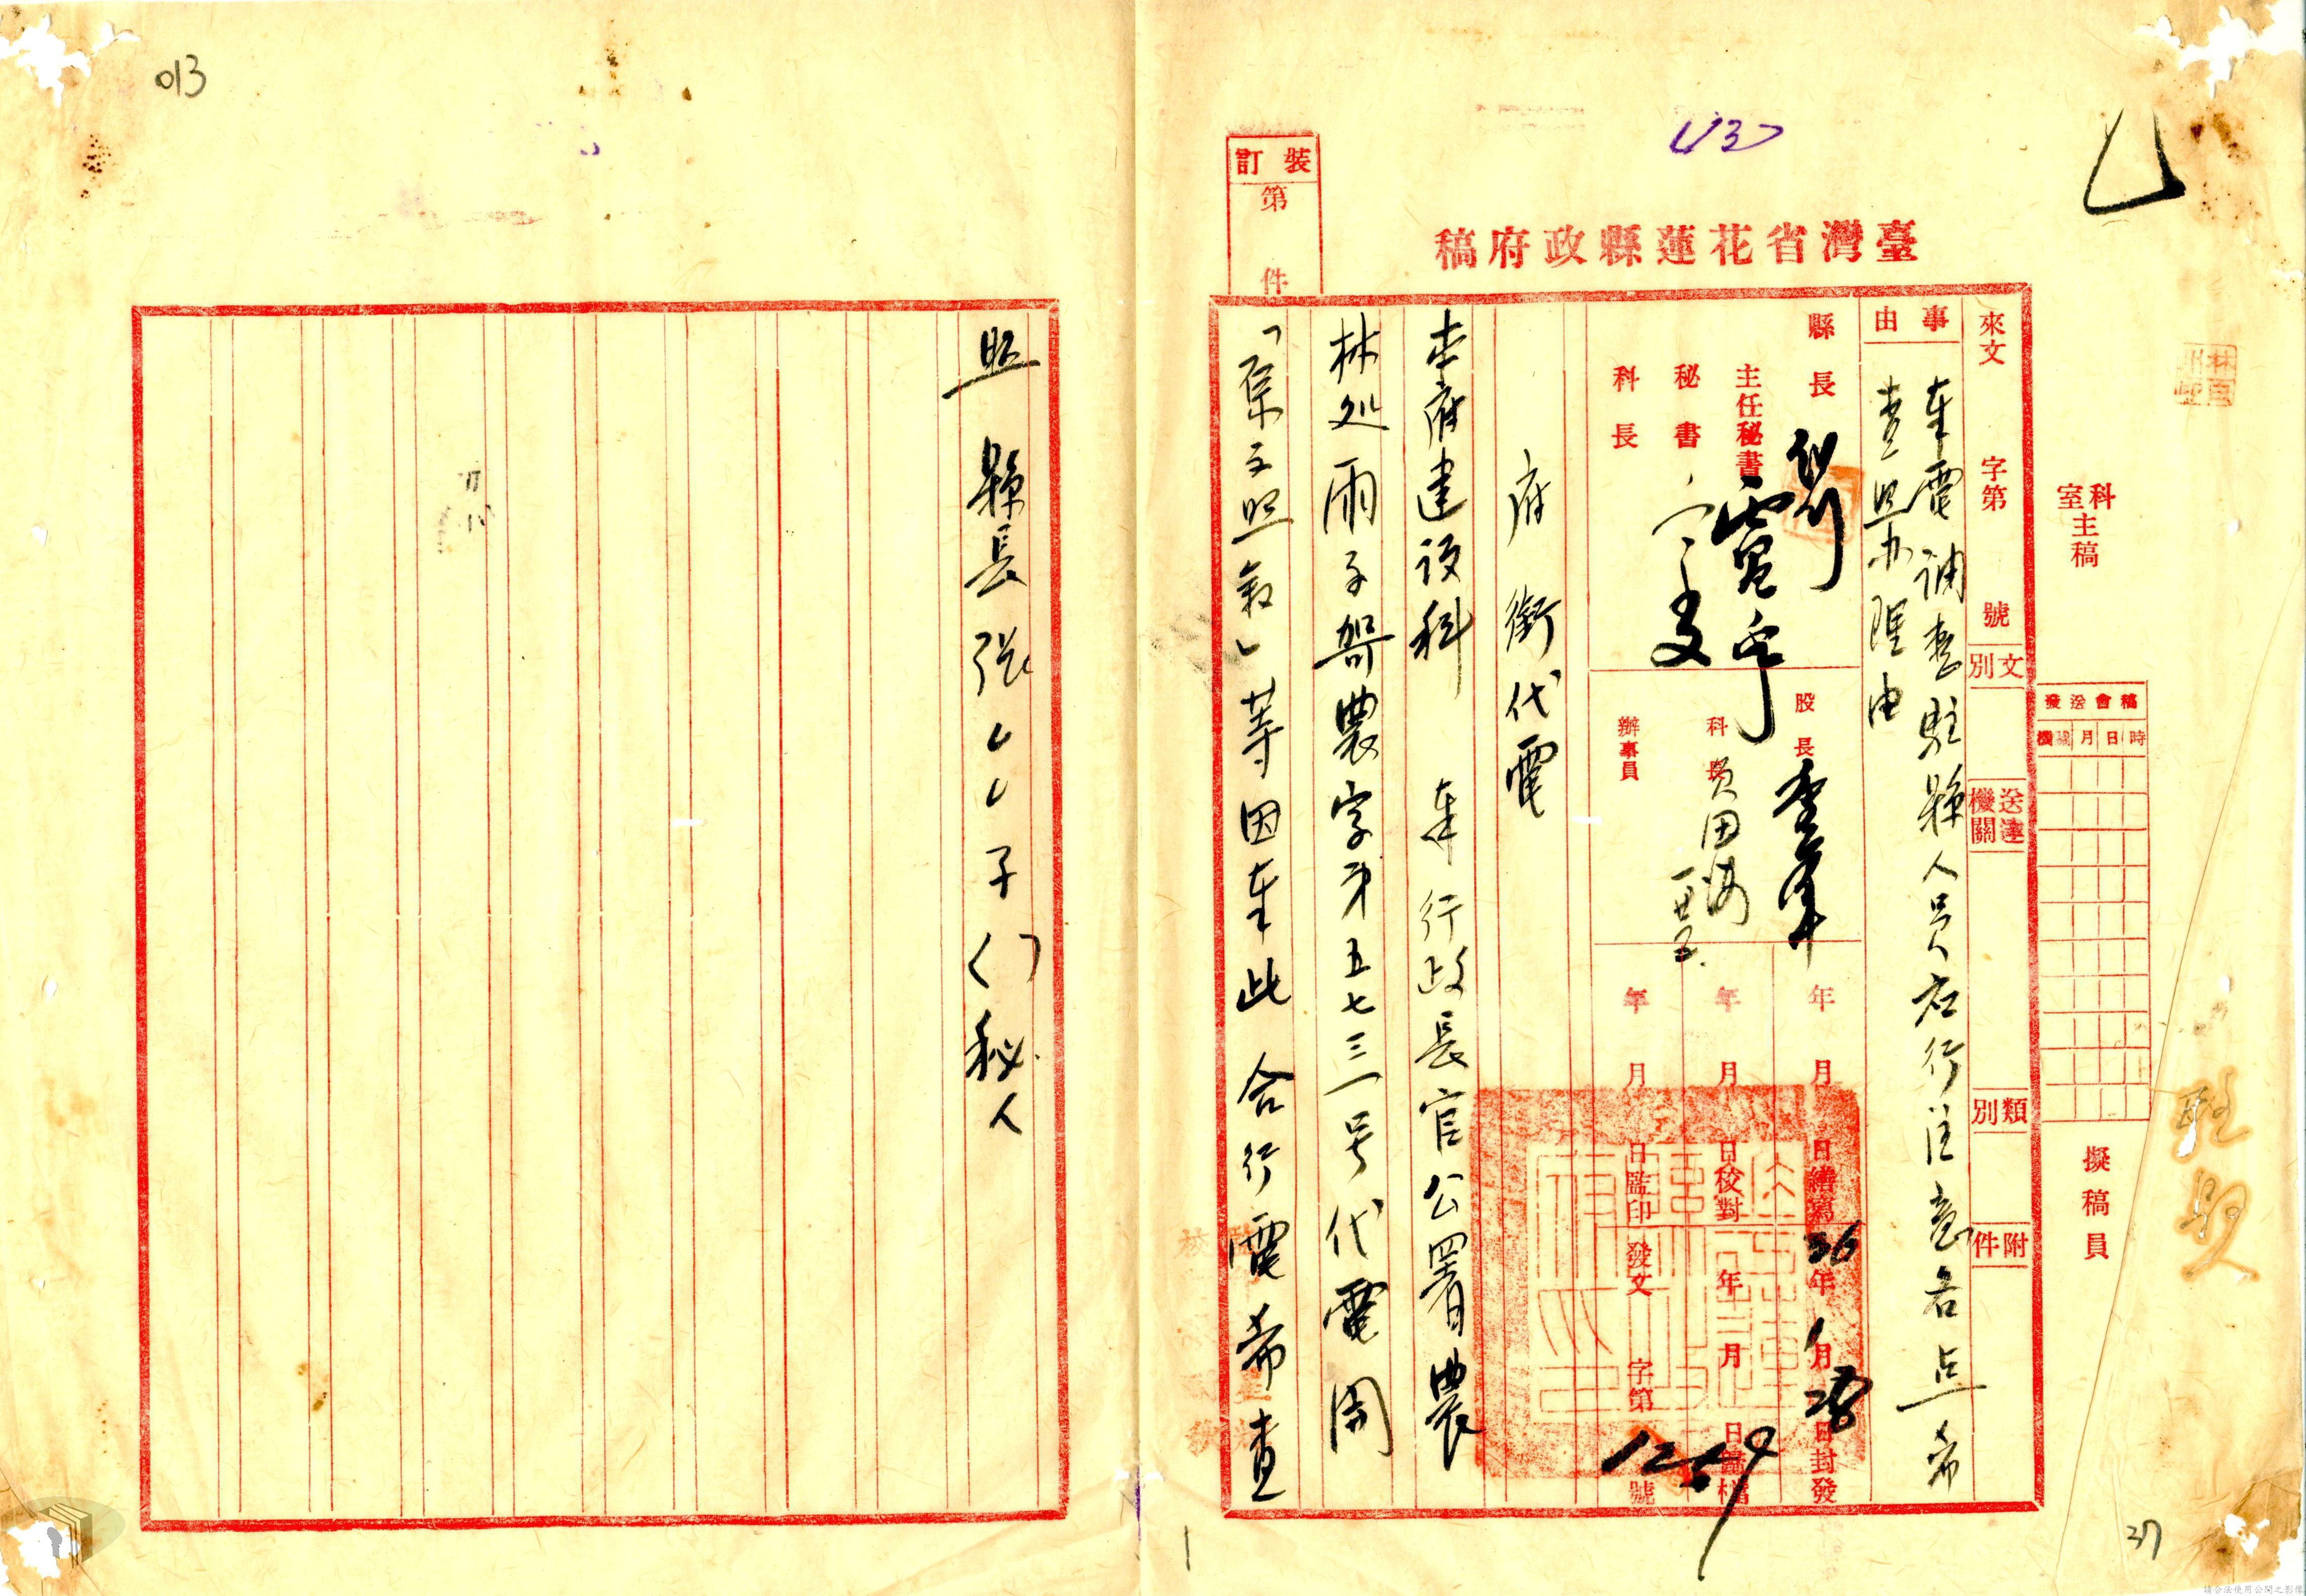 013
(13)
裝訂
第 件
臺灣省花蓮縣政府稿
科室主稿
擬稿員
稿會送發
時日月機關
來文 字第 號
文別
送達機關
類別
附件
事由
奉電調整駐縣人員應行注意各点希
查照办理由
縣長
主任秘書
秘書
科長
股長
科員
辦事員
年 月 日繕寫
年 月 日校對
年 月 日監印
36年1月28日封發
年 月 日歸檔
發文 字第1259號
府銜代電
本府建設科 奉行政長官公署農
林处雨子 農字第五七三一号代電開
「原文照敘」等因奉此合行電希查
照 縣長張 子 秘人
37
請合法使用公開之影像